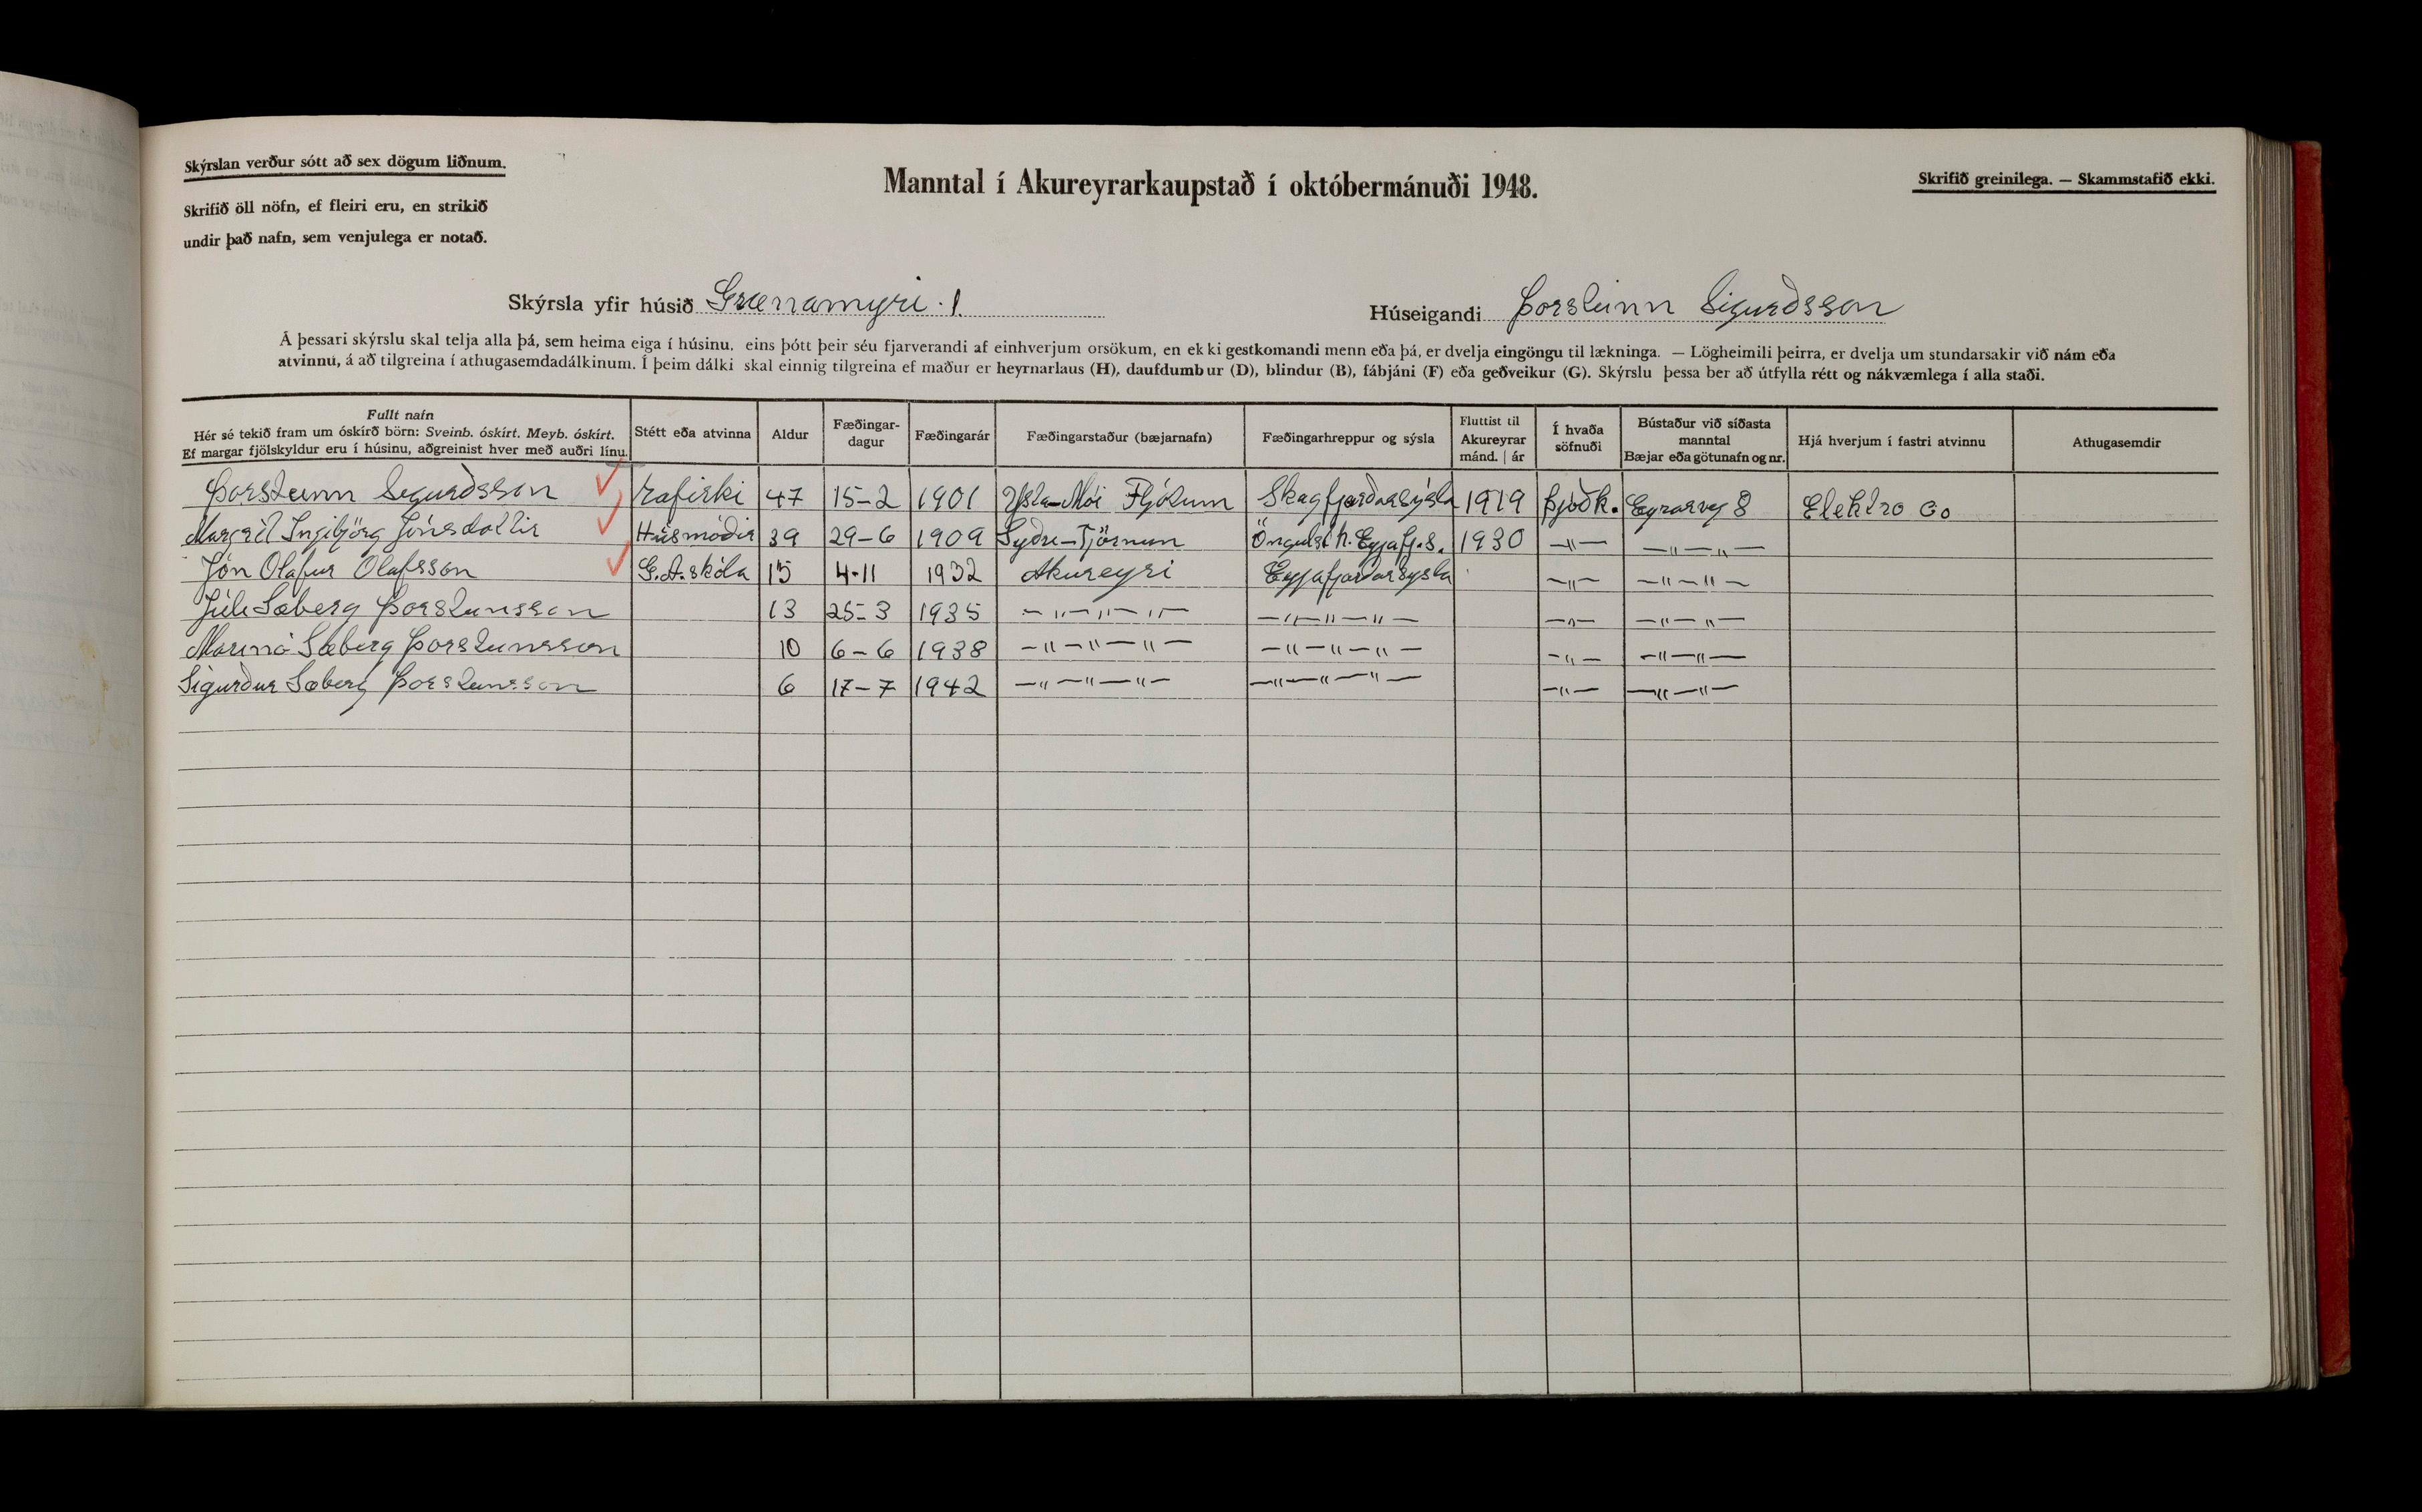 Skýrslan verður sótt að sex dögum liðnum.
Skrifið öll nöfn, ef fleiri eru, en strikið
undir það nafn, sem venjulega er notað.
Manntal í Akureyrarkaupstað í októbermánuði 1948.
Skrifið greinilega. — Skammstafið ekki.
Skýrsla yfir húsið Grænamýri 1.
Húseigandi Þorsteinn Sigurðsson
Á þessari skýrslu skal telja alla þá, sem heima eiga í húsinu, eins þótt þeir séu fjarverandi af einhverjum orsökum, en ekki gestkomandi menn eða þá, er dvelja eingöngu til lækninga. — Lögheimili þeirra, er dvelja um stundarsakir við nám eða
atvinnu, á að tilgreina í athugasemdadálkinum. Í þeim dálki skal einnig tilgreina ef maður er heyrnarlaus (H), daufdumbur (D), blindur (B), fábjáni (F) eða geðveikur (G). Skýrslu þessa ber að útfylla rétt og nákvæmlega í alla staði.
Fullt nafn
Hér sé tekið fram um óskírð börn: Sveinb. óskírt. Meyb. óskírt.
Ef margar fjölskyldur eru í húsinu, aðgreinist hver með auðri línu.
Stétt eða atvinna
Aldur
Fæðingar-
dagur
Fæðingarár
Fæðingarstaður (bæjarnafn)
Fæðingarhreppur og sýsla
Fluttist til
Akureyrar
mánd. | ár
Í hvaða
söfnuði
Bústaður við síðasta
manntal
Bæjar eða götunafn og nr.
Hjá hverjum í fastri atvinnu
Athugasemdir
Þorsteinn Sigurðsson rafirki 47 15-2 1901 Ysta-Mói Fljótum Skagfjarðarsýsla 1919 Þjóðk. Eyrarveg 8 Elektro Co
Margrét Ingibjörg Jónsdottir Húsmóðir 39 29-6 1909 Syðri-Tjörnum Öngulst.h. Eyjafj.s. 1930 —〃— —〃—〃—
Jón Olafur Olafsson G.A.skóla 15 4-11 1932 Akureyri Eyjafjarðarsysla —〃— —〃—〃—
Júlí Sæberg Þorsteinsson 13 25-3 1935 —〃—〃—〃— —〃—〃—〃— —〃— —〃—〃—
Marinó Sæberg Þorsteinsson 10 6-6 1938 —〃—〃—〃— —〃—〃—〃— —〃— —〃—〃—
Sigurður Sæberg Þorsteinsson 6 17-7 1942 —〃—〃—〃— —〃—〃—〃— —〃— —〃—〃—